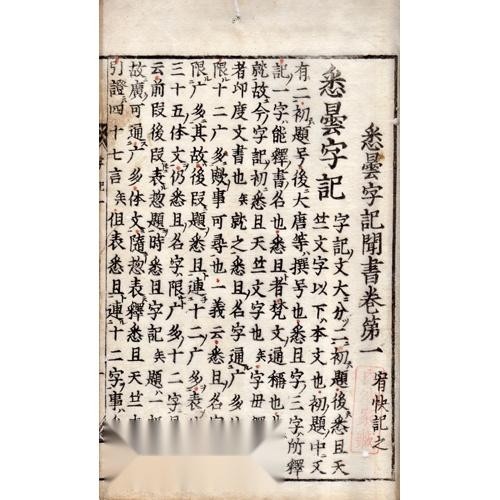 悉曇字記聞書卷第一 宥快記之
悉曇字記 字記文大分二初題後悉且天
竺文字以下本文也初題中文
有二初題号後大唐等撰号也悉且字三字所釋
記一字能釋書名也悉且者梵文通稱也
就故今字記初悉且天竺文字也矣字毋
者印度文書也矣就之悉且名字通广
限十二广多歟事可尋也一義云悉且名字
限广多其故後段題悉且連十二广多表
三十五体文仍悉且名字限广多十二字
云前段後段表惣題時悉且字記矣題一
故廣可通广多体文隨惣表釋悉且天竺
引證四十七言矣但表悉且連十二字事